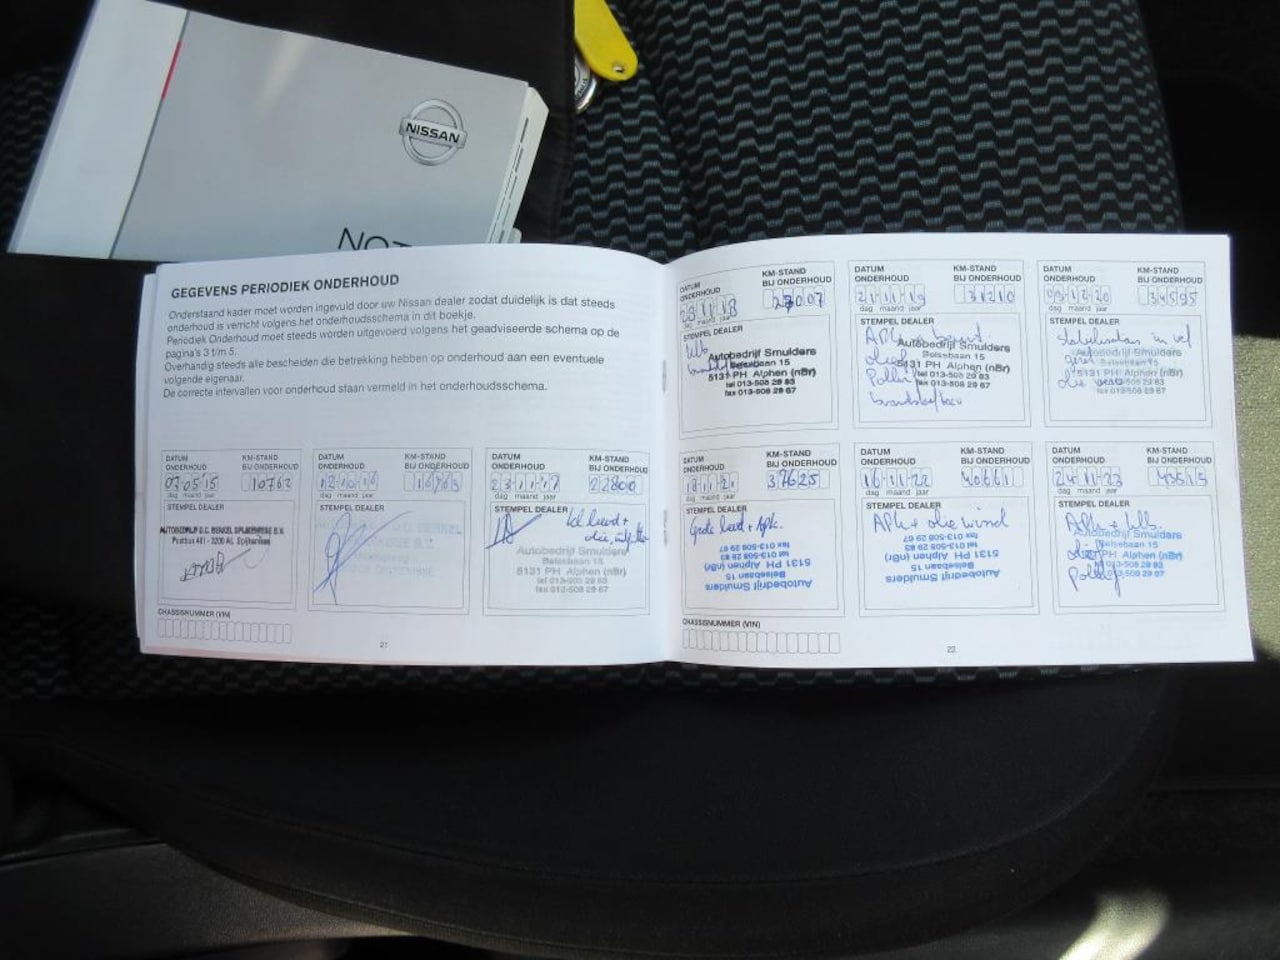 NISSAN
GEGEVENS PERIODIEK ONDERHOUD
Onderstaand kader moet worden ingevuld door uw Nissan dealer zodat duidelijk is dat steeds
onderhoud is verricht volgens het onderhoudsschema in dit boekje.
Periodiek Onderhoud moet steeds worden uitgevoerd volgens het geadviseerde schema op de
pagina's 3 t/m 5.
Overhandig steeds alle bescheiden die betrekking hebben op onderhoud aan een eventuele
volgende eigenaar.
De correcte intervallen voor onderhoud staan vermeld in het onderhoudsschema.
DATUM ONDERHOUD
KM-STAND BIJ ONDERHOUD
07 05 15
10762
dag maand jaar
STEMPEL DEALER
CHASSISNUMMER (VIN)
DATUM ONDERHOUD
KM-STAND BIJ ONDERHOUD
dag maand jaar
STEMPEL DEALER
DATUM ONDERHOUD
KM-STAND BIJ ONDERHOUD
23 11 17
22800
dag maand jaar
STEMPEL DEALER
Autobedrijf Smulders
Belsebaan 15
5131 PH Alphen (nBr)
tel 013-508 29 83
fax 013-508 29 67
21
DATUM ONDERHOUD
KM-STAND BIJ ONDERHOUD
dag maand jaar
STEMPEL DEALER
Autobedrijf Smulders
Belsebaan 15
5131 PH Alphen (nBr)
tel 013-508 29 83
fax 013-508 29 67
DATUM ONDERHOUD
KM-STAND BIJ ONDERHOUD
21 11 19
31210
dag maand jaar
STEMPEL DEALER
Autobedrijf Smulders
Belsebaan 15
5131 PH Alphen (nBr)
tel 013-508 29 83
fax 013-508 29 67
DATUM ONDERHOUD
KM-STAND BIJ ONDERHOUD
34595
dag maand jaar
STEMPEL DEALER
Autobedrijf Smulders
Belsebaan 15
5131 PH Alphen (nBr)
DATUM ONDERHOUD
KM-STAND BIJ ONDERHOUD
37625
dag maand jaar
STEMPEL DEALER
Grote beurt + Apk.
Autobedrijf Smulders
Belsebaan 15
5131 PH Alphen (nBr)
tel 013-508 29 83
fax 013-508 29 67
CHASSISNUMMER (VIN)
DATUM ONDERHOUD
KM-STAND BIJ ONDERHOUD
16 11 22
40661
dag maand jaar
STEMPEL DEALER
APK + olie
Autobedrijf Smulders
Belsebaan 15
5131 PH Alphen (nBr)
tel 013-508 29 83
fax 013-508 29 67
DATUM ONDERHOUD
KM-STAND BIJ ONDERHOUD
24 11 23
43515
dag maand jaar
STEMPEL DEALER
Autobedrijf Smulders
Belsebaan 15
5131 PH Alphen (nBr)
22